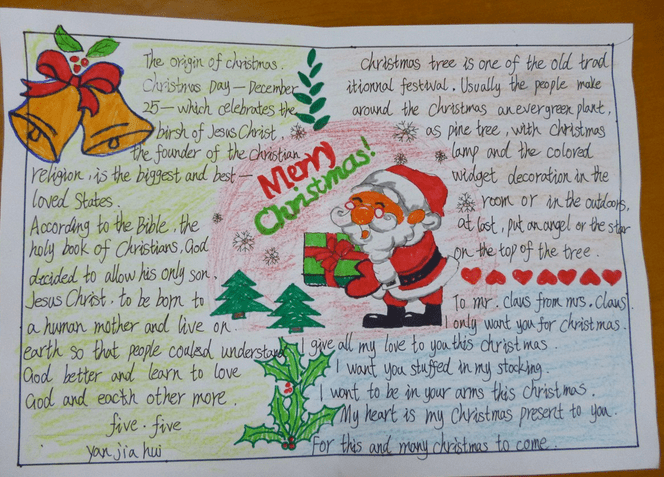 The origin of christmas.
Christmas Day — December
25 — which celebrates the
birsh of Jesus Christ,
the founder of the Christian
religion, is the biggest and best —
loved States.
According to the Bible, the
holy book of Christians, God
decided to allow his only son.
Jesus Christ, to be born to
a human mother and live on
earth so that people couled understand
God better and learn to love
God and eacth other more.
five. five
yan jia hui
Merry
Christmas!
christmas tree is one of the old trad
itionnal festival. Usually the people make
around the Christmas an evergreen plant,
as pine tree, with christmas
lamp and the colored
widget decoration in the
room or in the outdoors,
at last, put an angel or the star
on the top of the tree.
To mr. claus from mrs. Claus.
I only want you for christmas.
I give all my love to you this christmas.
I want you stuffed in my stocking.
I want to be in your arms this christmas.
My heart is my Christmas present to you.
For this and many christmas to come.